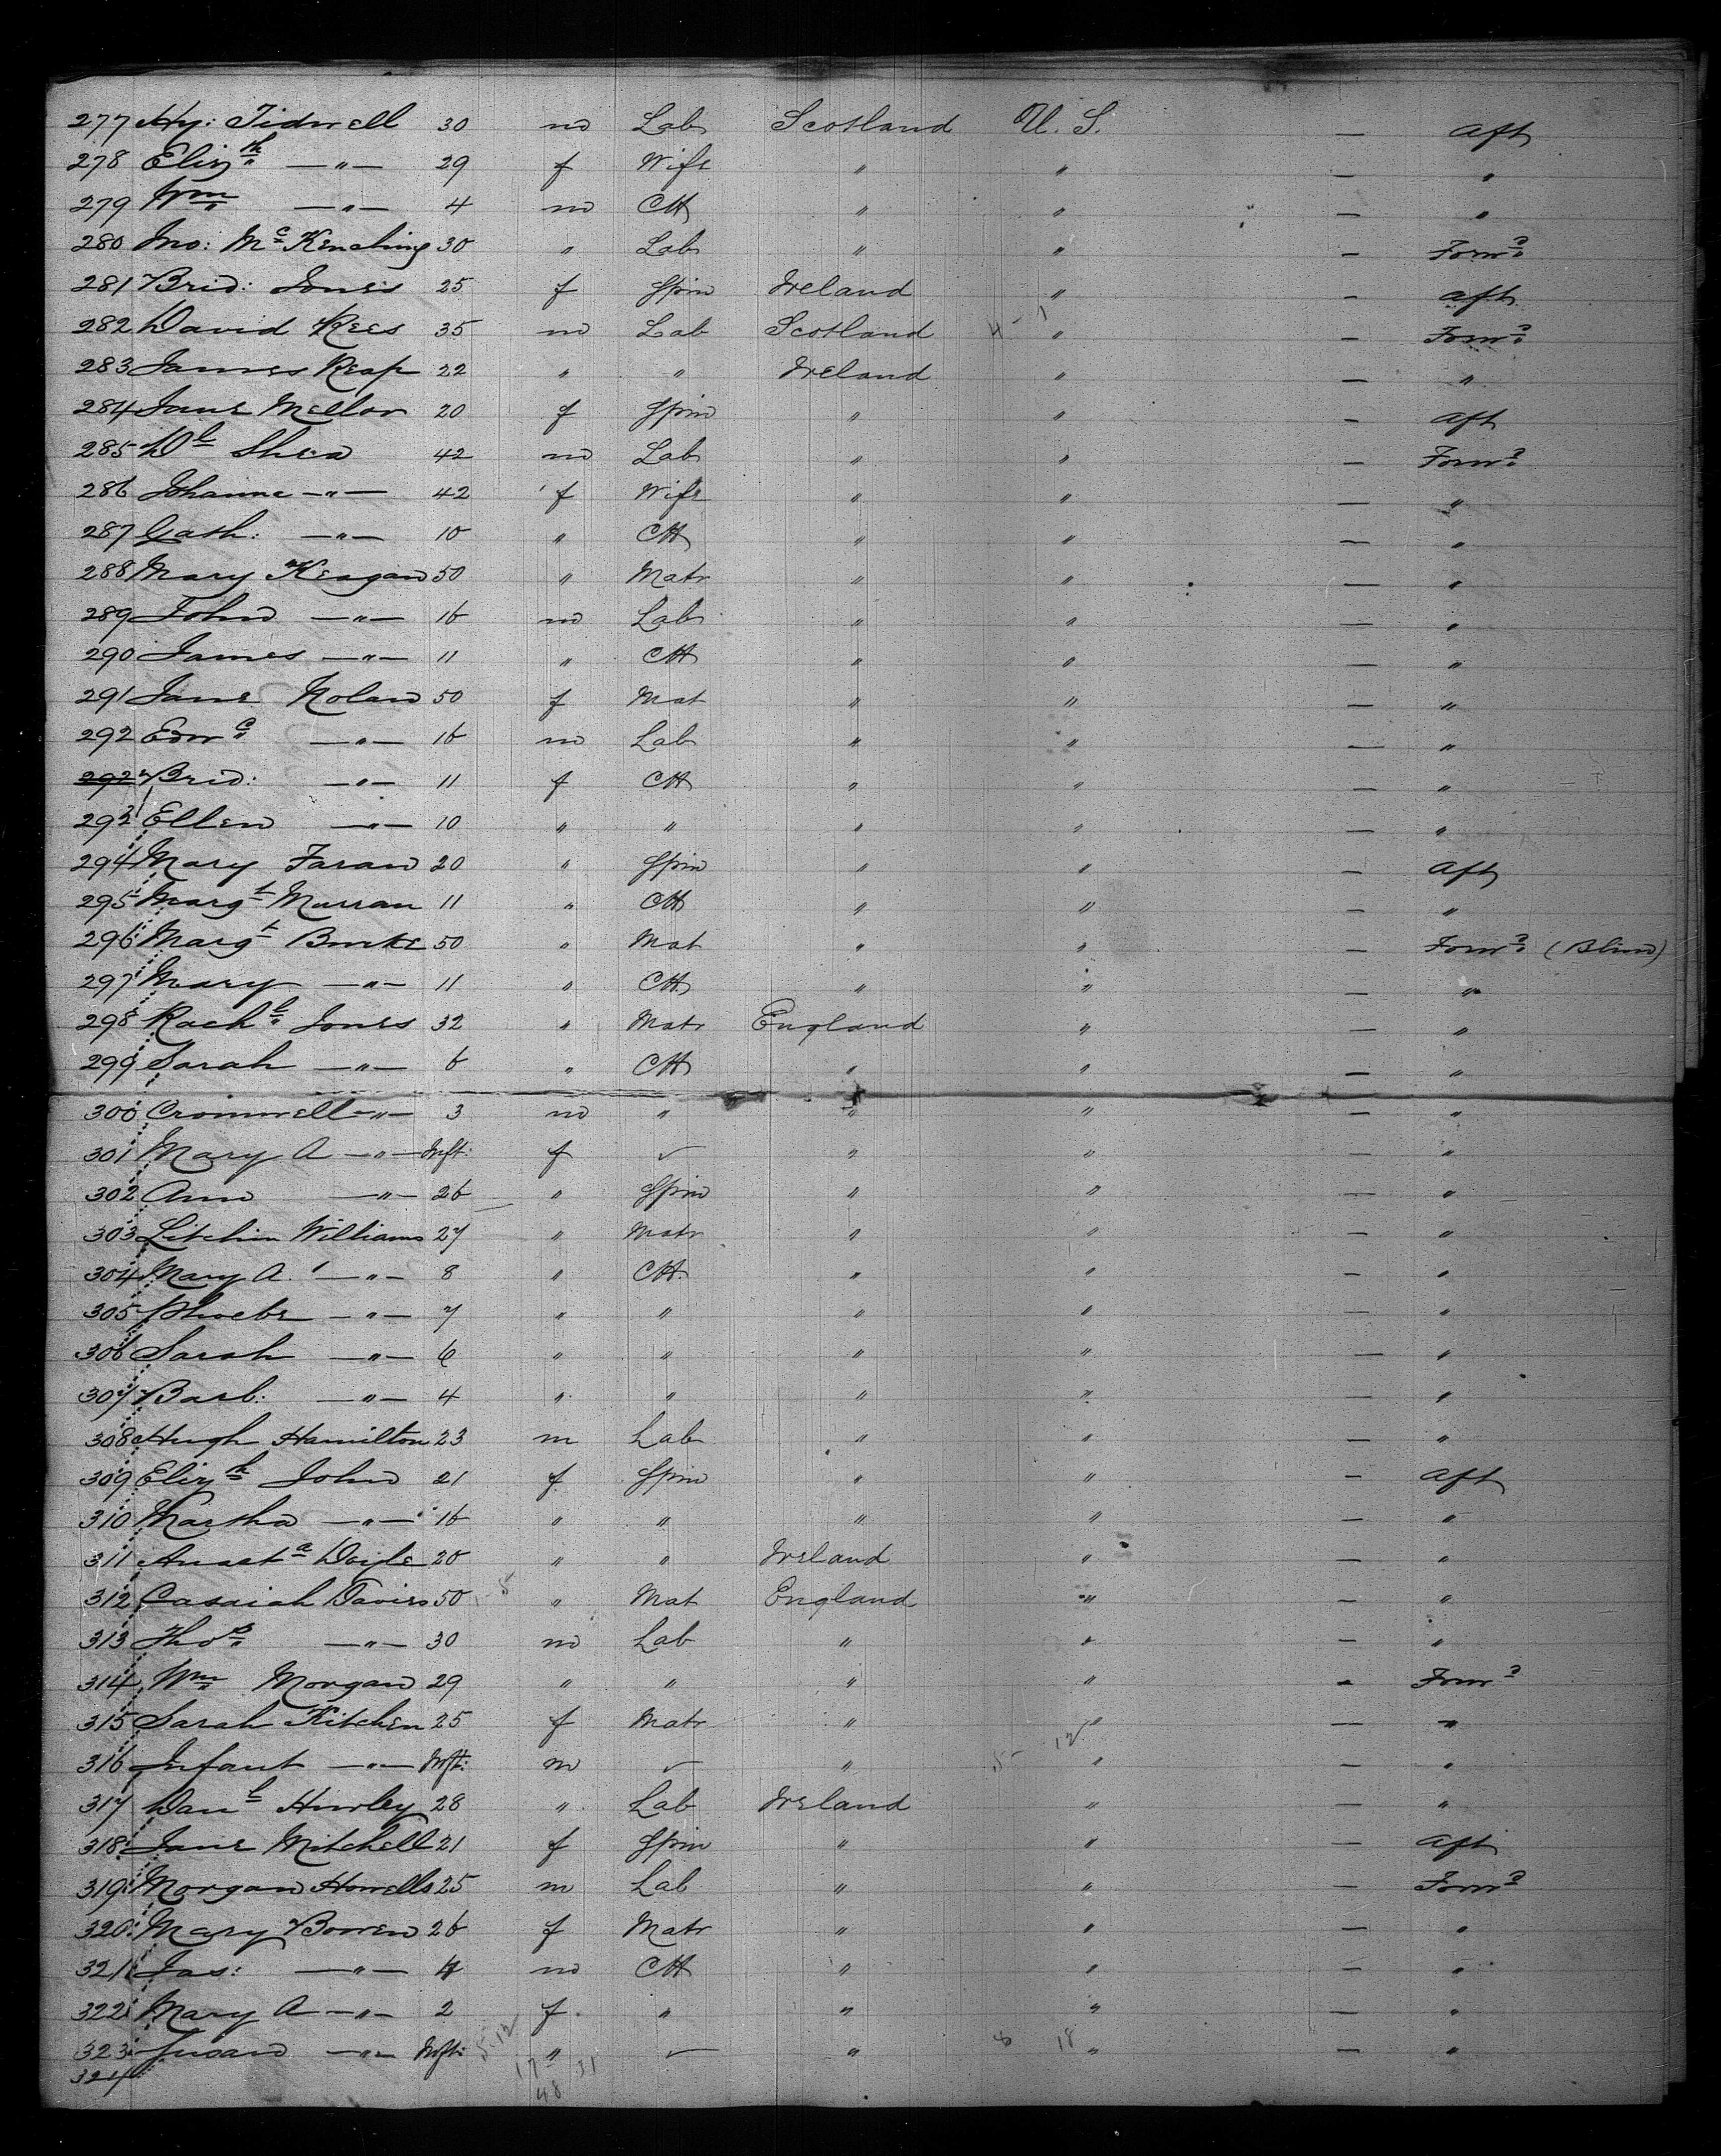 277 Hy: Tidwell 30 m Lab Scotland U. S. — aft
278 Eliz th — " — 29 f Wife " " — "
279 Wm — " — 4 m Ch " " — "
280 Jno: Mc 30 " Lab " " — Forwd
281 Brid: Jones 25 f Spin Ireland " — aft
282 David Rees 35 m Lab Scotland " — Forwd
283 James Reap 22 " " Ireland " — "
284 Jane Mellor 20 f Spin " " — aft
285 Dl Shea 42 m Lab " " — Forwd
286 Johanna — " — 42 f Wife " " — "
287 Cath: — " — 10 " Ch " " — "
288 Mary Keagan 50 " Matr " " — "
289 John — " — 16 m Lab " " — "
290 James — " — 11 " Ch " " — "
291 Jane Nolan 50 f Mat " " — "
292 Edwd — " — 16 m Lab " " — "
292 Brid: — " — 11 f Ch " " — "
293 Ellen — " — 10 " " " " — "
294 Mary Faran 20 " Spin " " — Aft
295 Margt Murran 11 " Ch " " — "
296 Margt Burke 50 " Mat " " — Forwd (Blind)
297 Mary — " — 11 " Ch " " — "
298 Rachl Jones 32 " Matr England " — "
299 Sarah — " — 6 " Ch " " — "
300 Cromwell — " — 3 m " " " — "
301 Mary A — " — Inft: f ✓ " " — "
302 Ann — " — 26 " Spin " " — "
303 Litchin Williams 27 " Matr " " — "
304 Mary A. — " — 8 " Ch. " " — "
305 Phoebe — " — 7 " " " " — "
306 Sarah — " — 6 " " " " — "
307 Barb: — " — 4 " " " " — "
308 Hugh Hamilton 23 m Lab " " — "
309 Elizth John 21 f Spin " " — aft
310 Martha — " — 16 " " " " — "
311 Anasta Doyle 20 " " Ireland " — "
312 Casaiah Davies 50 " Mat England " — "
313 Thos — " — 30 m Lab " " — "
314 Wm Morgan 29 " " " " — Forwd
315 Sarah Kitchen 25 f Matr " " — "
316 Infant — " — Inft: m ✓ " " — "
317 Danl Hurley 28 " Lab Ireland " — "
318 Jane Mitchell 21 f Spin " " — aft
319 Morgan Howells 25 m Lab " " — Forwd
320 Mary Bowen 26 f Matr " " — "
321 Jas: — " — 4 m Ch " " — "
322 Mary A — " — 2 f " " " — "
323 Susan — " — Inft: " ✓ " " — "
324